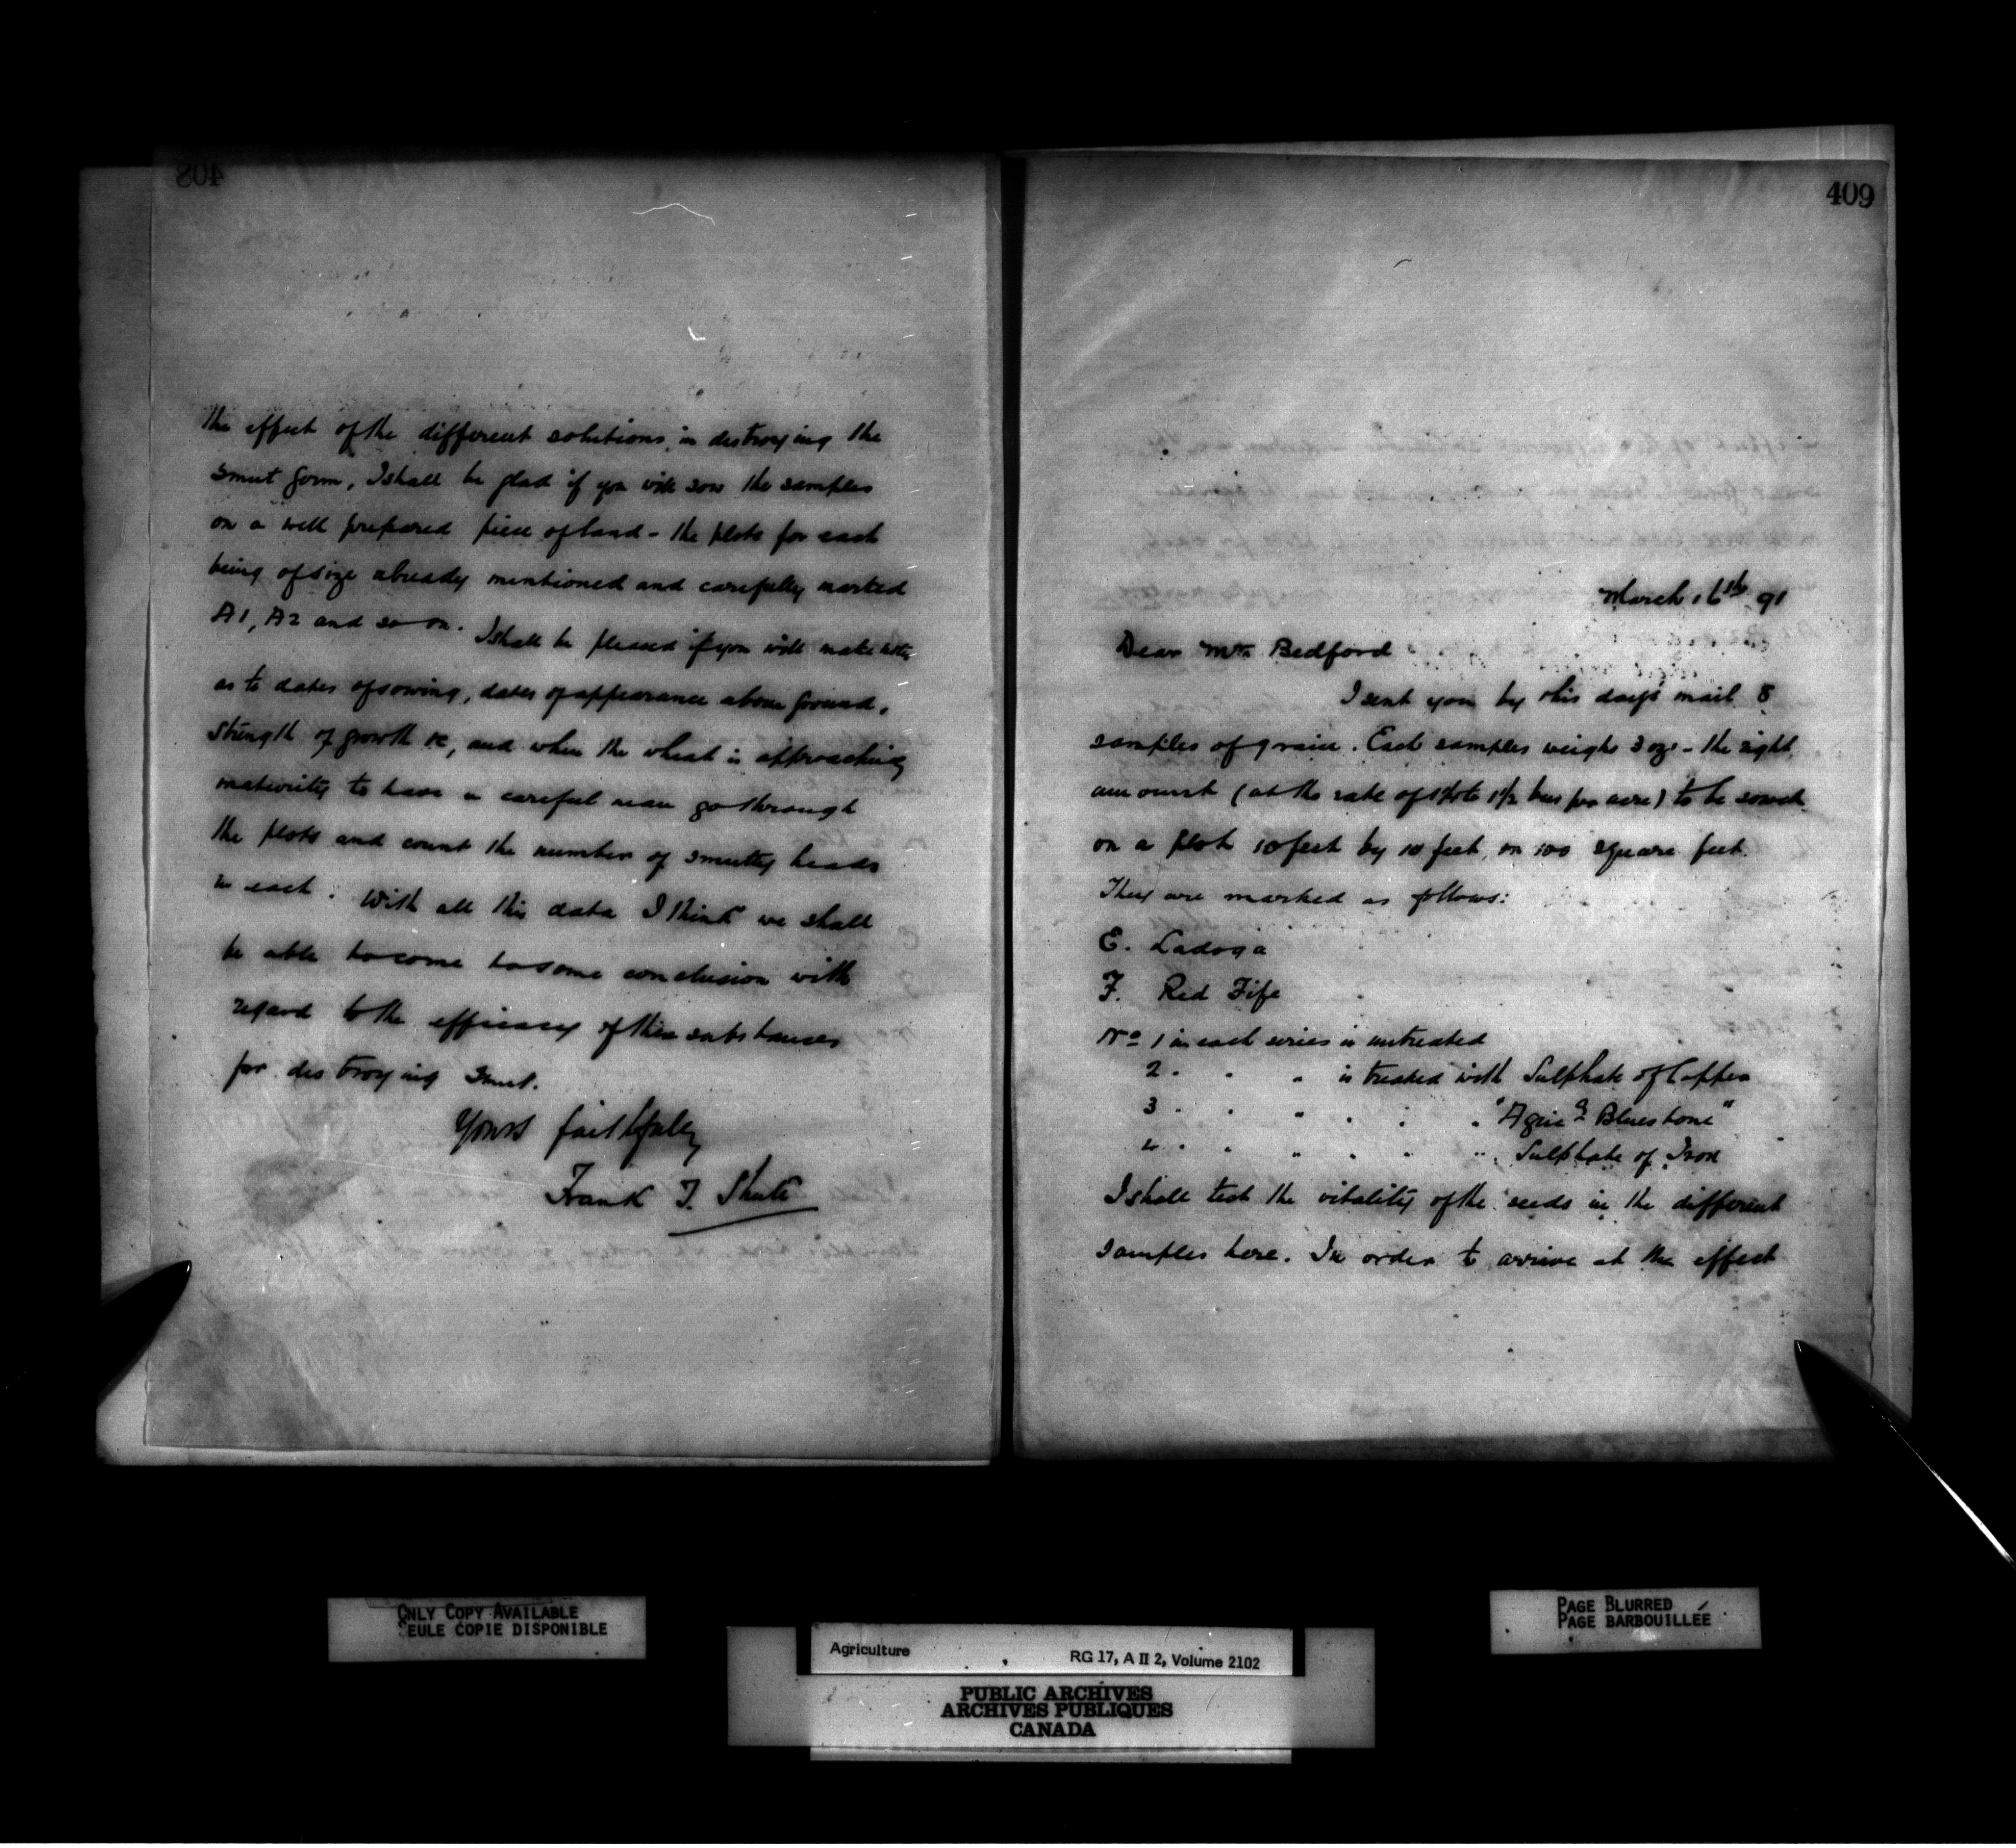 408
the effect of the different solutions in destroying the
smut germ, I shall be glad if you will sow the samples
on a well prepared piece of land - the plots for each
being of size already mentioned and carefully marked
A1, A2 and so on. I shall be pleased if you will make notes
as to dates of sowing, dates of appearance above ground,
strength of growth &c, and when the wheat is approaching
maturity to have a careful man go through
the plots and count the number of smutty heads
in each. With all this data I think we shall
be able to come to some conclusion with
regard to the efficacy of these substances
for destroying smut.
Yours faithfully
Frank T. Shutt
409
March 16th 91
Dear Mr. Bedford
I sent you by this day's mail 8
samples of grain. Each samples weighs 3 ozs - the right
amount (at the rate of to 1½ bus per acre) to be sowed
on a plot 10 feet by 10 feet, or 100 square feet.
They are marked as follows:
E. Ladoga
F. Red Fife
No 1 in each series is untreated
2 " " " is treated with Sulphate of Copper
3 " " " " " " "Agric'l Bluestone"
4 " " " " " " Sulphate of Iron
I shall test the vitality of the seeds in the different
samples here. In order to arrive at the effect
ONLY COPY AVAILABLE
SEULE COPIE DISPONIBLE
PAGE BLURRED
PAGE BARBOUILLÉE
Agriculture
RG 17, A II 2, Volume 2102
PUBLIC ARCHIVES
ARCHIVES PUBLIQUES
CANADA